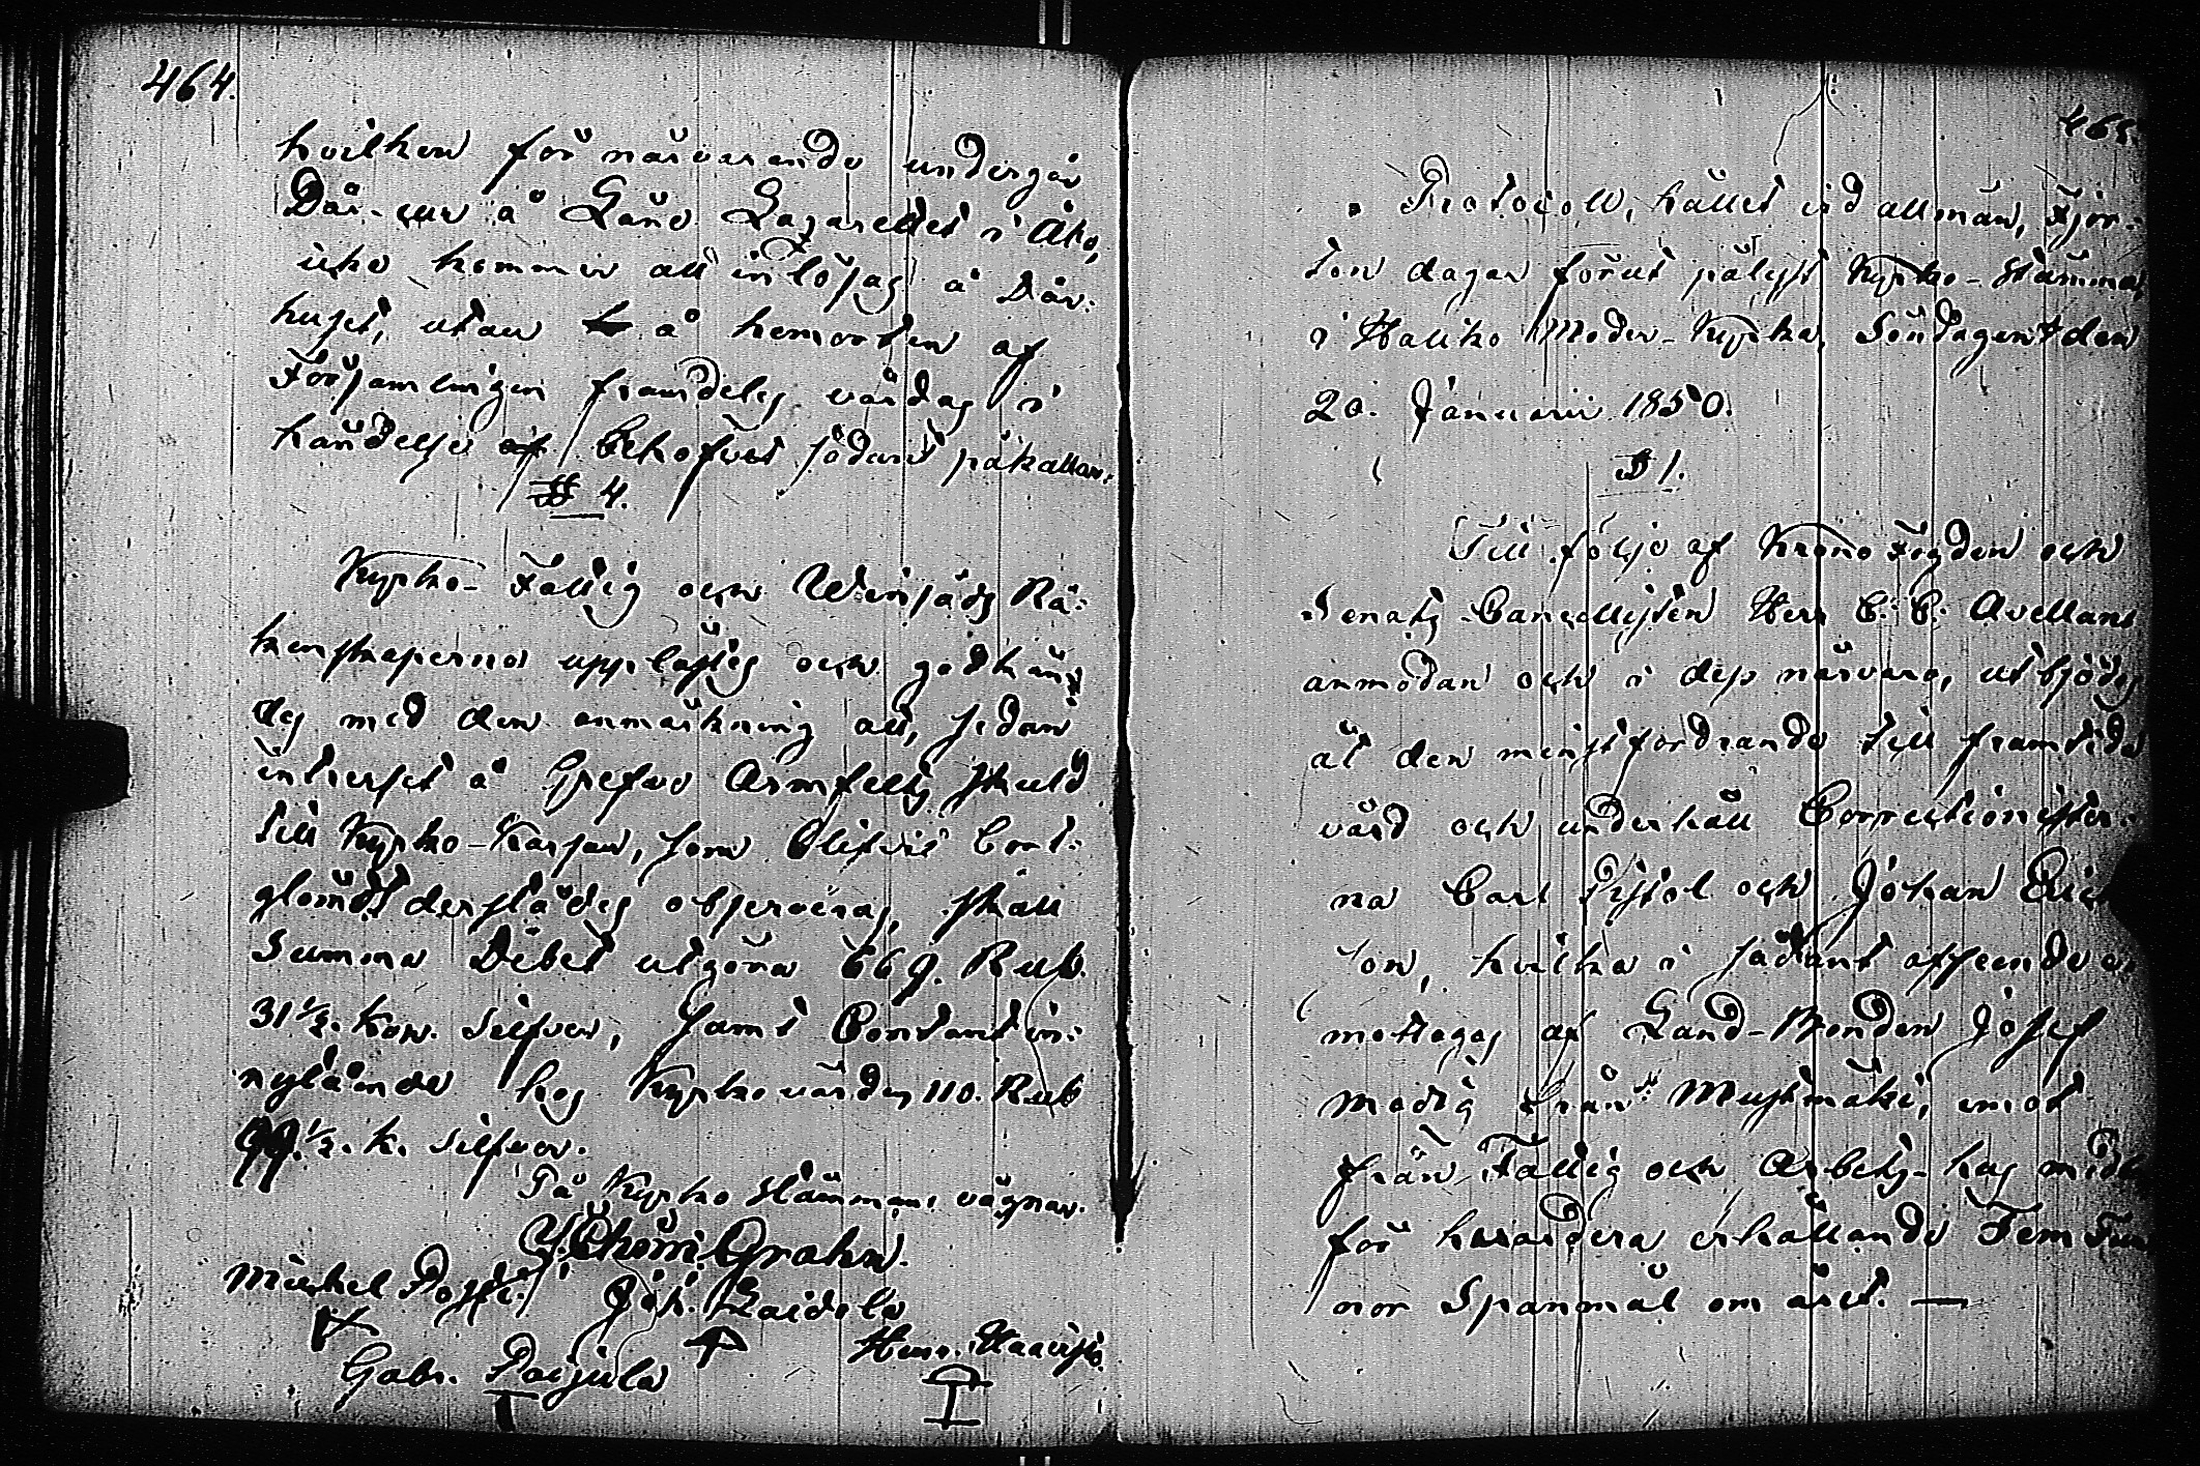 464.
hvilken för närvarande undergår
Dår-cur å Läns Lazarettet i Åbo,
icke kommer att inlösas å Dår-
huset, utan å hemorten af
Församlingen framdeles vårdas i
händelse behofvet sådant påkallar.
§ 4.
Kyrko- Fattig och Winsäds Rä-
kenskaperna upplästes och godkän-
des med den anmärkning att, sedan
intresset å Grefve Armfelts skuld
till Kyrko-Kassan, som blifvit bort-
glömdt derstädes observeras, skall
Summa Debet utgöra 669. Rub.
31 1/2. Kop. Silfver, samt Contant in-
nyländs hos Kyrkovärden 110. Rub
99 1/2. k. silfver.
På Kyrko Stämmans vägnar.
Grahn.
Michel Jöh. Laidola
Gabr. Henr. Haavisto
465.
Protocoll, hållet vid allmän, Fjor-
ton dagar förut pålyst Kyrko-Stämma
i Haliko Moder-Kyrka, Söndagen den
20. Januarii 1850.
§ 1.
Till följe af Krono Fogden och
Senats-Cancellisten Herr C. C. Avellans
anmodan och i dess närvaro, utbjöds
åt den minstfordrande till framtida
vård och underhåll Correctionister-
na Carl Pistol och Johan Erics
son, hvilka i sådant afseende
mottogos af Land-Bonden Josef
Modig från Mustmäki, emot
från Fattig och Arbets-hus
för hvardera erhållande Fem Tun
nor Spanmål om året. —